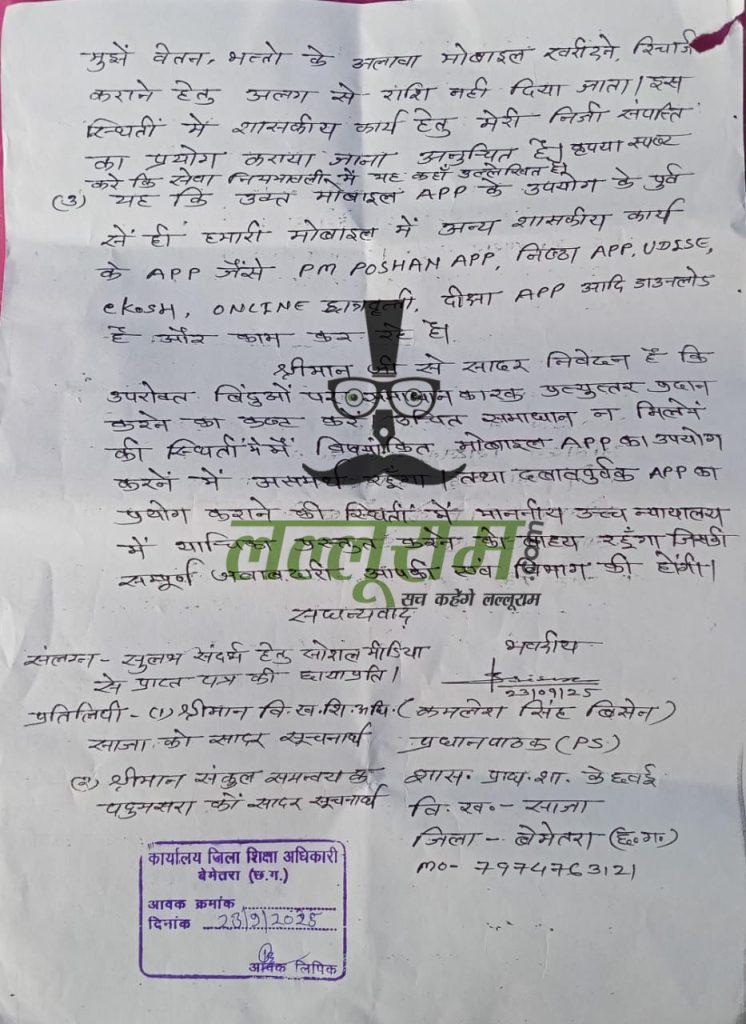 मुझे वेतन, भत्तो के अलावा मोबाइल खरीदने, रिचार्ज
कराने हेतु अलग से राशि नही दिया जाता। इस
स्थिती में शासकीय कार्य हेतु मेरी निजी संपत्ति
का प्रयोग कराया जाना अनुचित है। कृपया स्पष्ट
करे कि सेवा नियमावली में यह कहाँ उल्लेखित है।
(3) यह कि उक्त मोबाइल APP के उपयोग के पुर्व
से ही हमारी मोबाइल में अन्य शासकीय कार्य
के APP जैसे PM POSHAN APP, निष्ठा APP, UDISE,
ekosh, ONLINE छात्रवृत्ती, दीक्षा APP आदि डाउनलोड
है और काम कर रहे है।
श्रीमान जी से सादर निवेदन है कि
उपरोक्त बिंदुओं पर समाधान कारक प्रत्युत्तर प्रदान
करने का कष्ट करें। उचित समाधान न मिलने
की स्थिती में मैं विषयांकित मोबाइल APP का उपयोग
करने में असमर्थ रहूँगा। तथा दबावपुर्वक APP का
प्रयोग कराने की स्थिती में माननीय उच्च न्यायालय
में याचिका प्रस्तुत करने को बाध्य रहूँगा जिसकी
सम्पूर्ण जवाबदारी आपकी एवं विभाग की होगी।
लल्लूराम.com
सच कहेंगे लल्लूराम
सधन्यवाद
संलग्न - सुलभ संदर्भ हेतु सोशल मीडिया
से प्राप्त पत्र की छायाप्रति।
भवदीय
23/09/25
प्रतिलिपी - (1) श्रीमान वि.ख.शि.अधि.
साजा को सादर सूचनार्थ
(2) श्रीमान संकुल समन्वयक
पदुमसरा को सादर सूचनार्थ
(कमलेश सिंह बिसेन)
प्रधानपाठक (PS)
शास. प्राथ. शा. केछवई
वि. ख. - साजा
जिला - बेमेतरा (छ.ग.)
mo- 7974763121
कार्यालय जिला शिक्षा अधिकारी
बेमेतरा (छ.ग.)
आवक क्रमांक
दिनांक 23/9/2025
आवक लिपिक